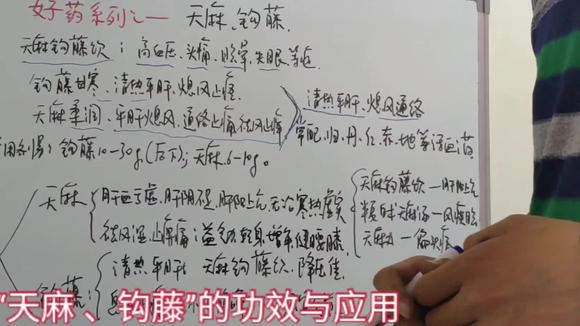 好药系列之一 天麻、钩藤.
天麻钩藤饮:高血压、头痛、眩晕、失眠等症
钩藤甘寒、清热平肝、熄风止痉
天麻柔润、平肝熄风、通络止痛祛风止痹
清热平肝、熄风通络
常配归、丹、红、赤、地等活血药
用剂量:钩藤10-30g(后下);天麻6-10g。
天麻 肝血亏虚、肝阴不足、肝阳上亢、无论寒热虚实
祛风湿、止痹痛;益气轻身增年健腰膝
天麻钩藤饮—肝阳上亢
半夏白术天麻汤—风痰眩
天麻丸—偏头痛
钩藤: 清热平肝 天麻钩藤饮、降压佳
“天麻、钩藤”的功效与应用